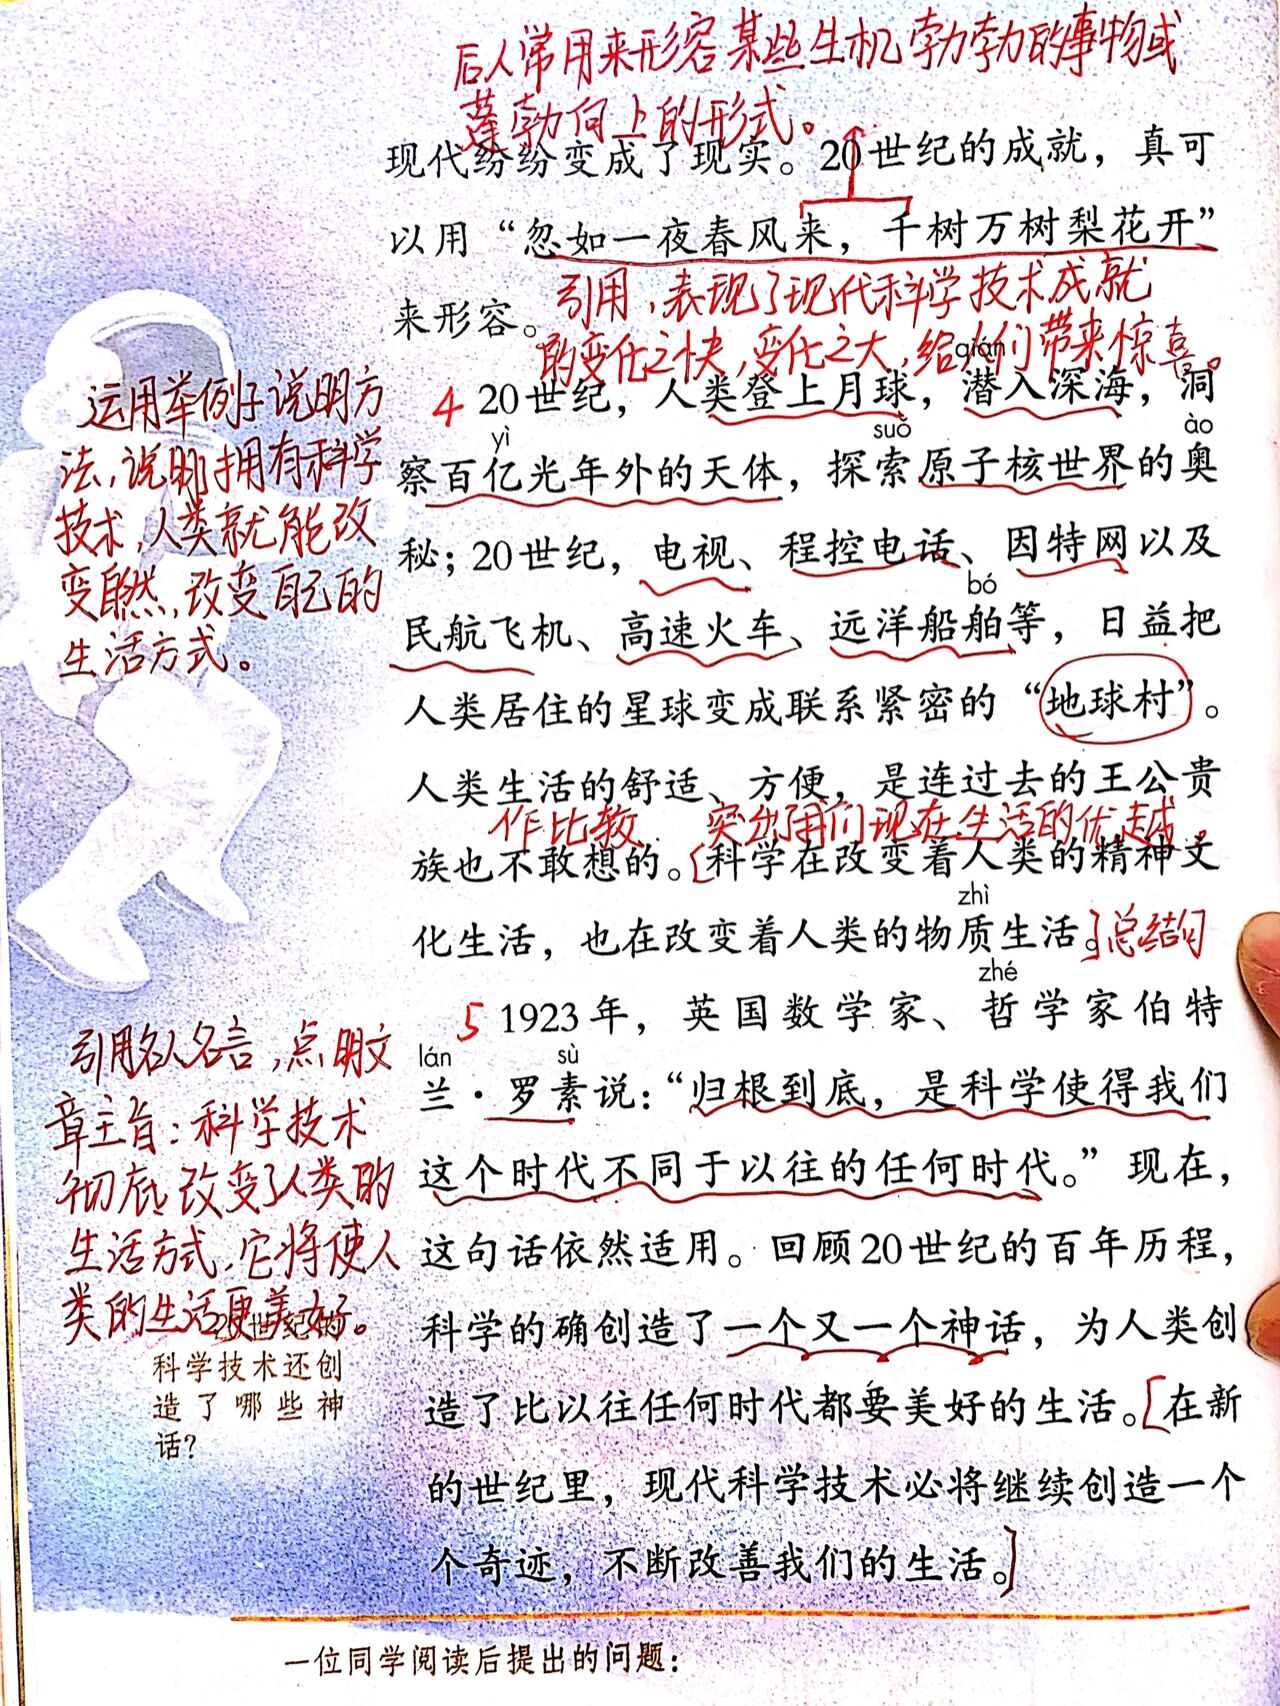 后人常用来形容某些生机勃勃的事物或
蓬勃向上的形式。
现代纷纷变成了现实。20世纪的成就，真可
以用“忽如一夜春风来，千树万树梨花开”
来形容。
引用，表现了现代科学技术成就
的变化之快，变化之大，给人们带来惊喜。
运用举例子说明方
法，说明拥有科学
技术，人类就能改
变自然，改变自己的
生活方式。
qián
4 20世纪，人类登上月球，潜入深海，洞
yì suǒ ào
察百亿光年外的天体，探索原子核世界的奥
秘；20世纪，电视、程控电话、因特网以及
bó
民航飞机、高速火车、远洋船舶等，日益把
人类居住的星球变成联系紧密的“地球村”。
人类生活的舒适、方便，是连过去的王公贵
作比较 突出了我们现在生活的优越。
族也不敢想的。[科学在改变着人类的精神文
zhì
化生活，也在改变着人类的物质生活。]总结句
zhé
5 1923年，英国数学家、哲学家伯特
lán sù
兰·罗素说：“归根到底，是科学使得我们
这个时代不同于以往的任何时代。”现在，
这句话依然适用。回顾20世纪的百年历程，
科学的确创造了一个又一个神话，为人类创
造了比以往任何时代都要美好的生活。[在新
的世纪里，现代科学技术必将继续创造一个
个奇迹，不断改善我们的生活。]
引用名人名言，点明文
章主旨：科学技术
彻底改变了人类的
生活方式，它将使人
类的生活更美好。
20世纪的
科学技术还创
造了哪些神
话？
一位同学阅读后提出的问题：